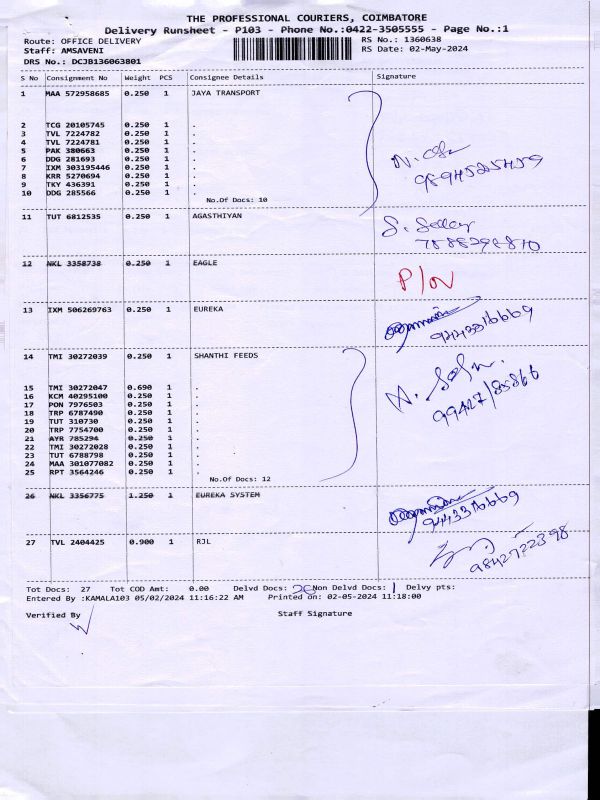 THE PROFESSIONAL COURIERS, COIMBATORE
Delivery Runsheet - P103 - Phone No.:0422-3505555 - Page No.:1
Route: OFFICE DELIVERY RS No.: 1360638
Staff: AMSAVENI RS Date: 02-May-2024
DRS No.: DCJB136063801
S No Consignment No Weight PCS Consignee Details Signature
1 MAA 572958685 0.250 1 JAYA TRANSPORT
2 TCG 20105745 0.250 1 .
3 TVL 7224782 0.250 1 .
4 TVL 7224781 0.250 1 .
5 PAK 380663 0.250 1 .
6 DDG 281693 0.250 1 .
7 IXM 303195446 0.250 1 .
8 KRR 5270694 0.250 1 .
9 TKY 436391 0.250 1 .
10 DDG 285566 0.250 1 .
No.Of Docs: 10
11 TUT 6812535 0.250 1 AGASTHIYAN
12 NKL 3358738 0.250 1 EAGLE P/W
13 IXM 506269763 0.250 1 EUREKA 9443316669
14 TMI 30272039 0.250 1 SHANTHI FEEDS
15 TMI 30272047 0.690 1 .
16 KCM 40295100 0.250 1 .
17 PON 7976503 0.250 1 .
18 TRP 6787490 0.250 1 .
19 TUT 310730 0.250 1 .
20 TRP 7754700 0.250 1 .
21 AYR 785294 0.250 1 .
22 TMI 30272028 0.250 1 .
23 TUT 6788798 0.250 1 .
24 MAA 301077082 0.250 1 .
25 RPT 3564246 0.250 1 .
No.Of Docs: 12
99427/85866
26 NKL 3356775 1.250 1 EUREKA SYSTEM 9443316669
27 TVL 2404425 0.900 1 RJL 9842722398
Tot Docs: 27 Tot COD Amt: 0.00 Delvd Docs: 26 Non Delvd Docs: 1 Delvy pts:
Entered By :KAMALA103 05/02/2024 11:16:22 AM Printed on: 02-05-2024 11:18:00
Verified By Staff Signature